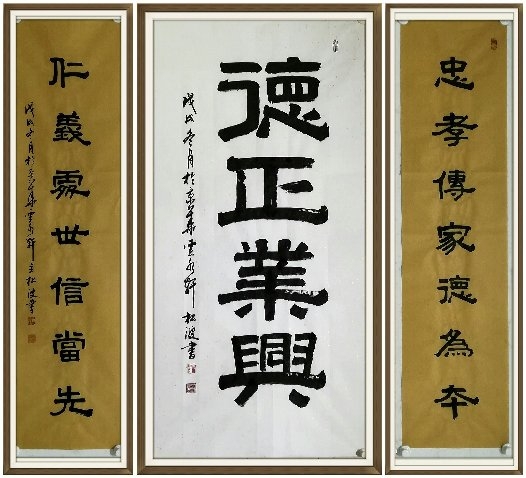 忠孝傳家德為夲
德正業興
戊戌冬月於京華雲水軒 松波書
仁義處世信當先
戊戌冬月於京華雲水軒主松波書